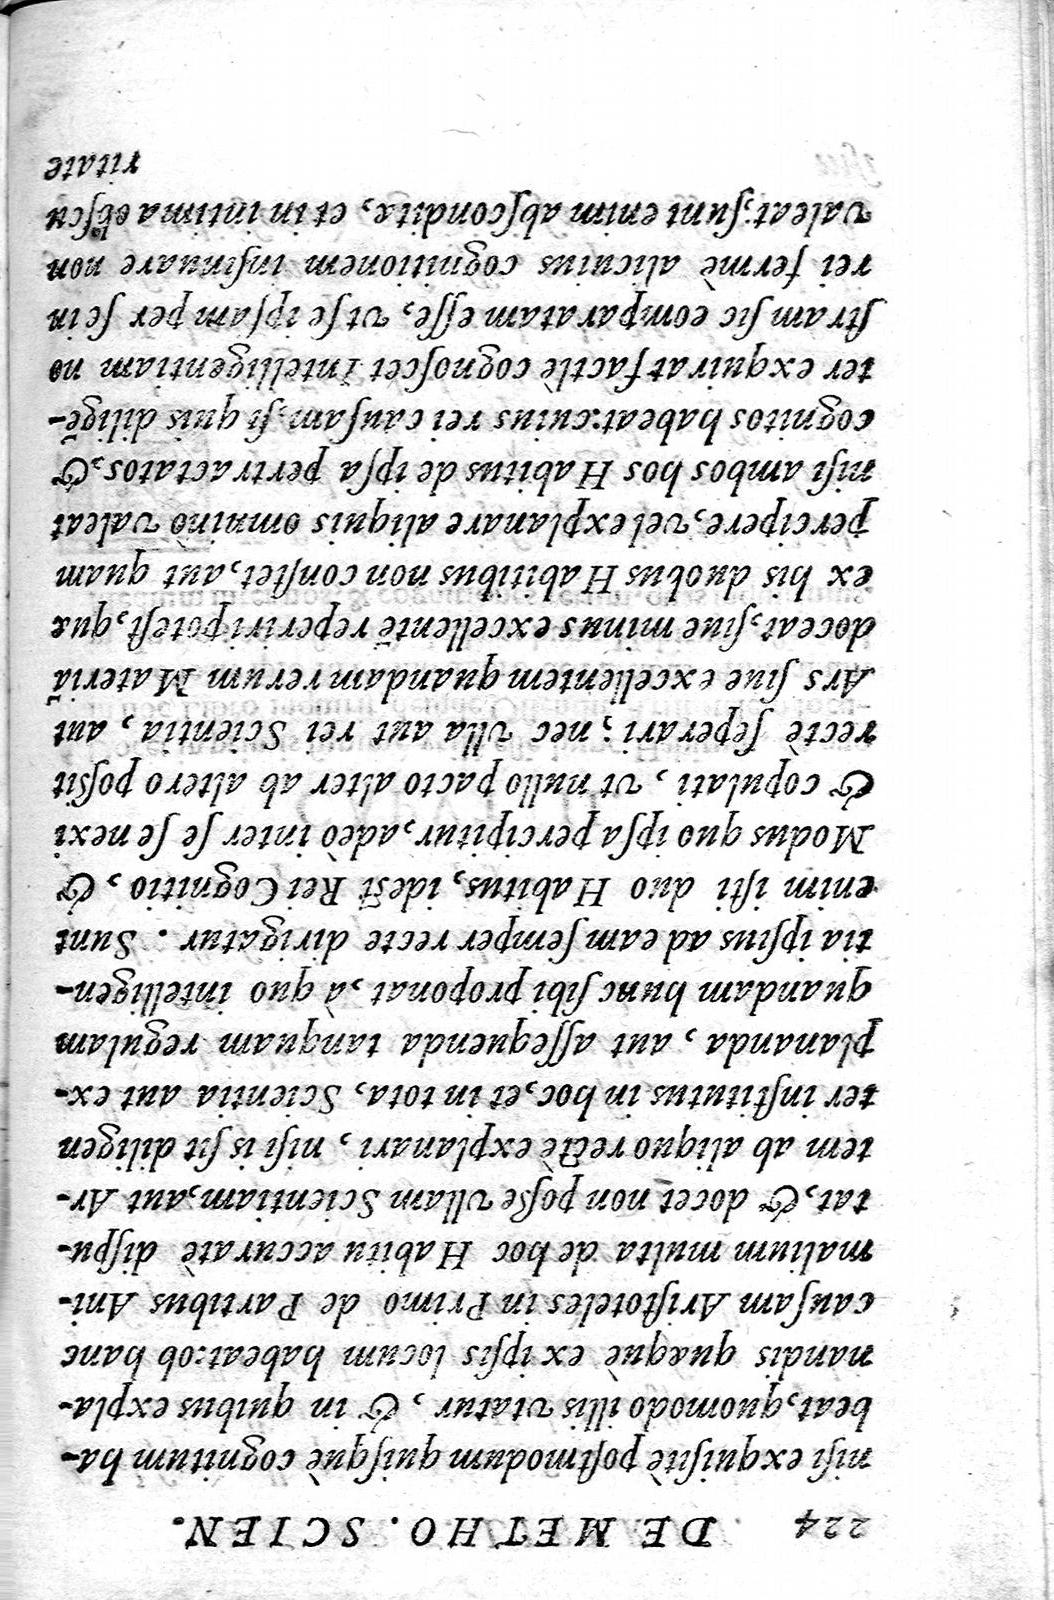 224 DE METHO. SCIEN.
nisi exquisitè postmodum quisquè cognitum ha-
beat, quomodo illis vtatur, & in quibus expla-
nandis quæquè ex ipsis locum habeat: ob hanc
causam Aristoteles in Primo de Partibus Ani-
malium multa de hoc Habitu accuratè dispu-
tat, & docet non posse vllam Scientiam, aut Ar-
tem ab aliquo rectè explanari, nisi is sit diligen
ter institutus in hoc, et in tota, Scientia aut ex-
plananda, aut assequenda tanquam regulam
quandam hunc sibi proponat, à quo intelligen-
tia ipsius ad eam semper recte dirigatur. Sunt
enim isti duo Habitus, idest Rei Cognitio, &
Modus quo ipsa percipitur, adeò inter se se nexi
& copulati, vt nullo pacto alter ab altero possit
rectè seperari; nec vlla aut rei Scientia, aut
Ars siue excellentem quandam rerum Materiā
doceat, siue minus excellentē reperiri potest, quæ
ex his duobus Habitibus non constet, aut quam
percipere, vel explanare aliquis omninò valeat
nisi ambos hos Habitus de ipsa pertractatos, &
cognitos habeat: cuius rei causam, si quis diligē-
ter exquirat facilè cognoscet Intelligentiam no
stram sic comparatam esse, vt se ipsam per se in
rei fermè alicuius cognitionem insinuare non
valeat; sunt enim absconditæ, et in intima obscu
ritate